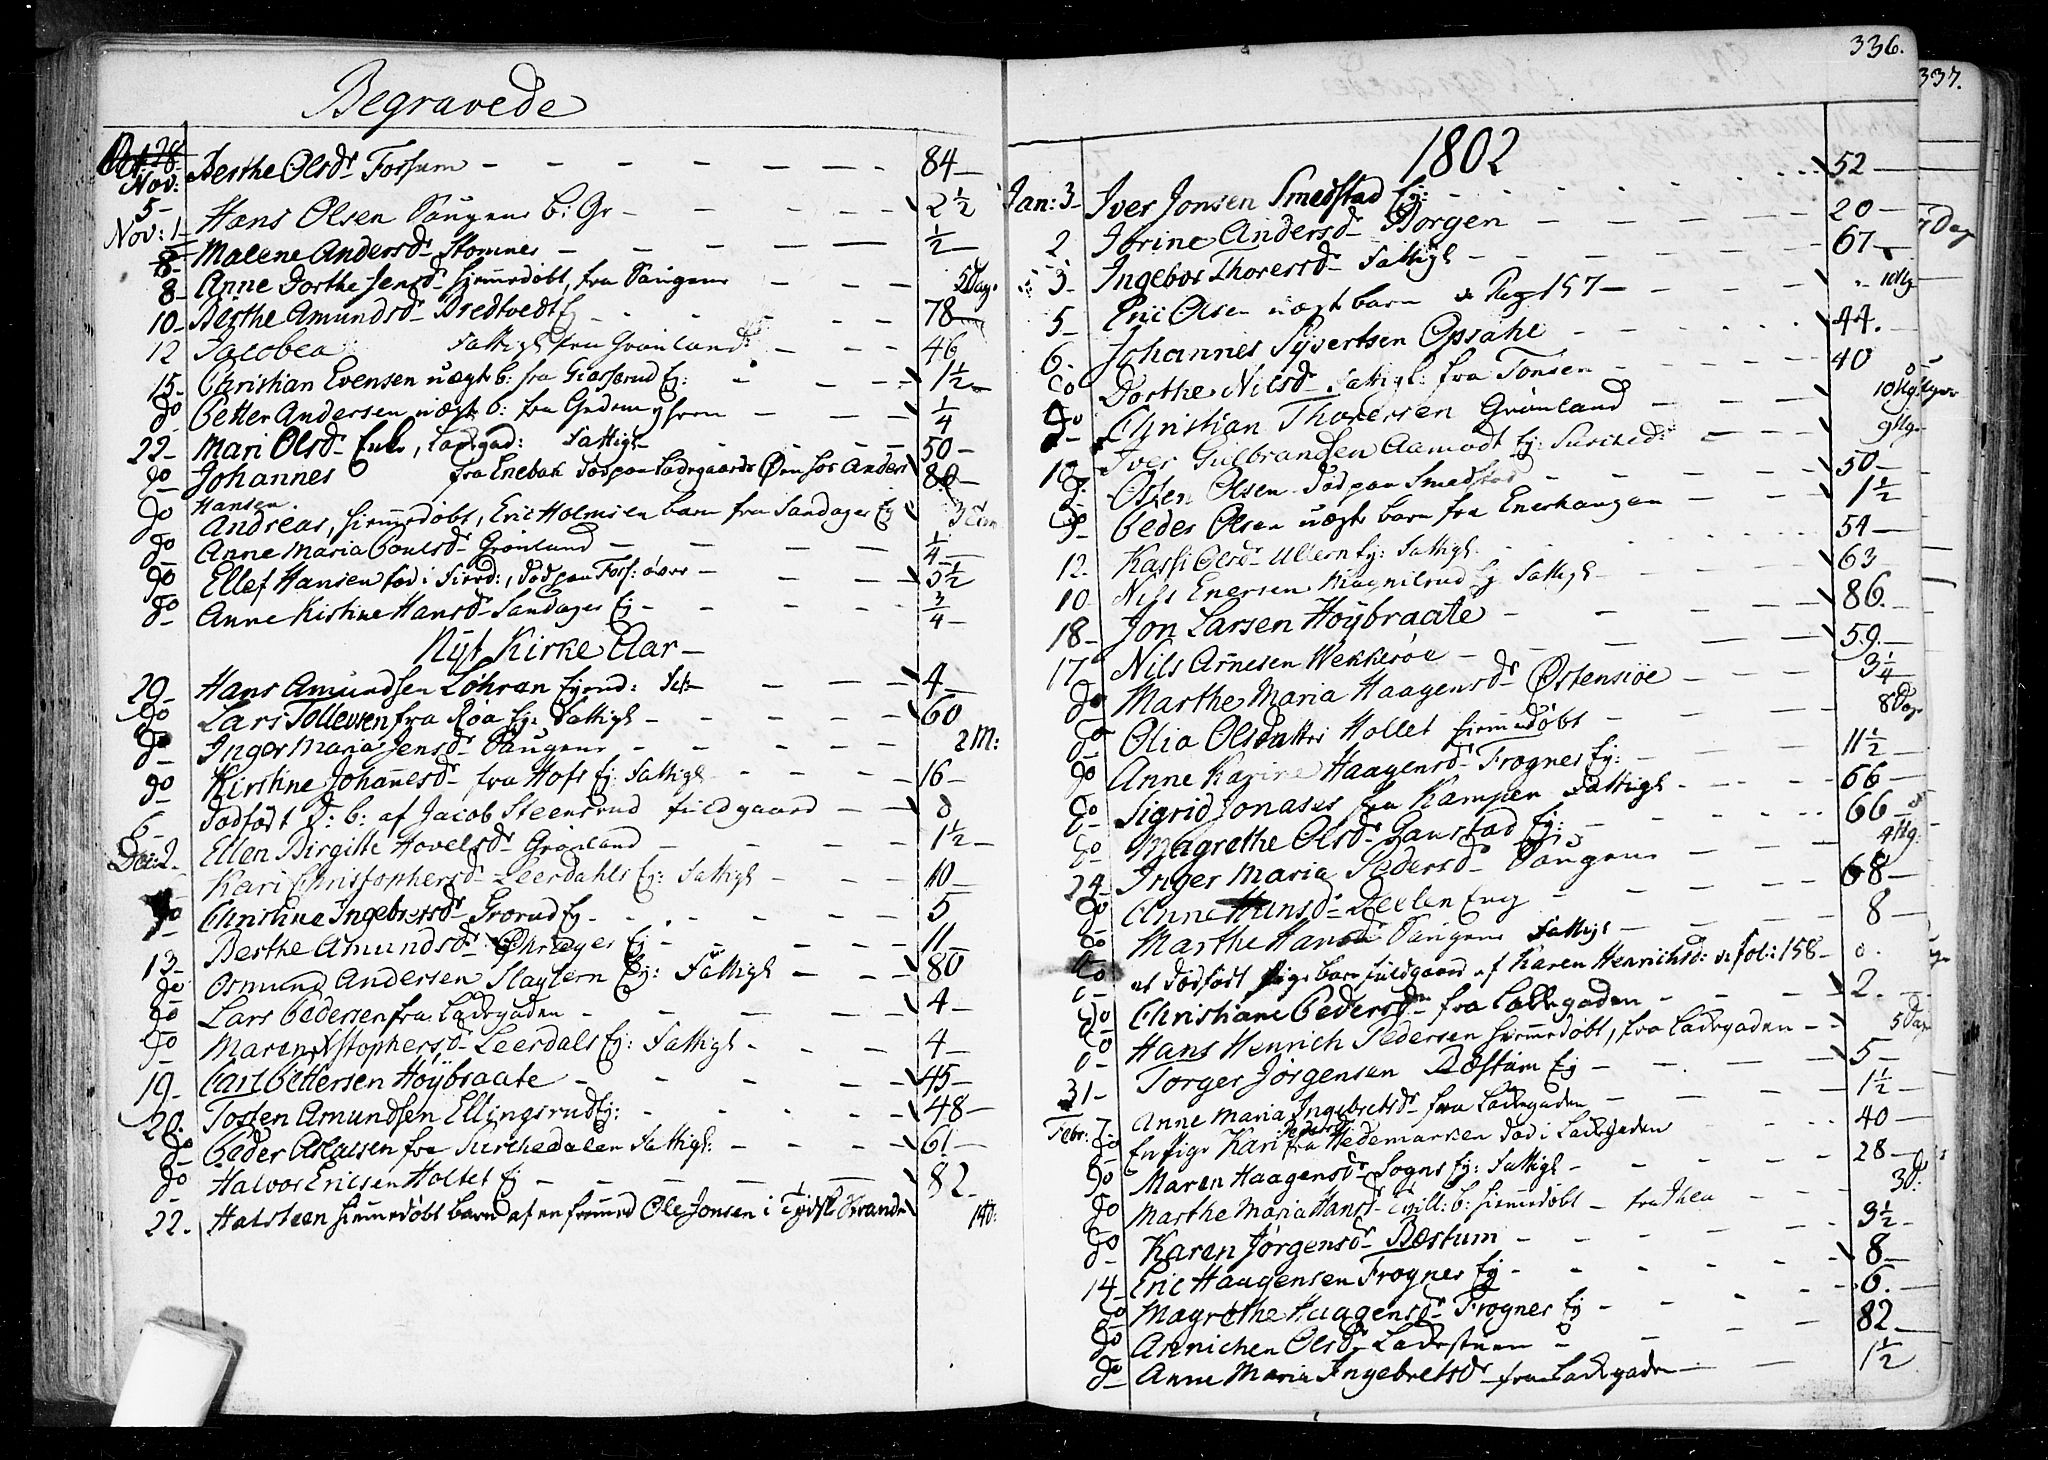 Begravede
Oct 28. Berthe Olsdr Fossum 84
Nov: 5 Hans Olsen b: Gr 2 1/2
Nov: 1
8 Malene Andersdr Stomnes 1/2
8 Anne Dorthe Jensdr hjemmedøbt, fra 5 Dage
10 Berthe Amundsdr Bredtvedt Ej 78
12 Jacobea Fattigl fra Grønland 46
15 Christian Evensen uægte b: fra Ej: 1 1/2
do Petter Andersen uægte b: fra 1/4
22 Mari Olsdr Enke, Ladegad: Fattigl 50
do Johannes fra Enebak død paa Ladegaards Øen hos Anders 80
Hansen.
do Andreas, hjemmedøbt, Eric Holmsen barn fra Sandager Ej 3
do Anne Maria Poulsdr Grønland 1/4
do Ellef Hansen død paa 5 1/2
do Anne Kistine Hansdr Sandager Ej 3/4
Nyt Kirke Aar
29 Hans Amundsen Løhran 4
do Lars Tollevsen fra Røa Ej: Fattigl 60
do Inger Maria Jensdr 2 M:
do Kirstine Johanesdr fra Hofs Ej: Fattigl 16
6 Dødfødt D: b: af Jacob Steensrud 0
Dec: 2. Ellen Birgitte Hovelsdr Grønland 1 1/2
Kari Christophersdr Leerdahls Ej: Fattigl 10
do Christine Ingebretsdr Grorud Ej 5
13 Berthe Amundsdr Ej 11
do Osmund Andersen Slaytern Ej: Fattigl 80
do Lars Pedersen fra Ladegaden 4
do Maren Xstophersdr Leerdals Ej: Fattigl 4
19 Carl Pettersen Höybraate 45
20. Tosten Amundsen Ellingsrud Ej: 48
do Peder Aslaksen fra Fattigl: 61
do Halvor Ericsen Holtet Ej 82
22. Halsteen hjemmedøbt barn af en fremmed Ole Jonsen i 14D:
336.
337.
1802
Jan: 3 Iver Jonsen Smedstad Ej: 52
2 Jorine Andersdr Borgen 20
3 Ingebor Thoresdr Fattigl 67
5 Eric Olsen uægte barn Pag 157 10 Ug
6 Johannes Syvertsen Opsahl 44.
do Dorthe Nilsdr Fattigl: fra Tonsen 40
do Christian Thoresen Grønland 10 Ug
10 Iver Gulbrandsen Aamodt Ej: 9 Ug
do Osten Olsen død paa Smedstad 50
do Peder Olsen uægte barn fra Enerhaugen 1 1/2
12. Kari Olsdr Ullern Ej: Fattigl 54
10 Nils Enersen Ej Fattigl 63
18 Jon Larsen Höybraate 86.
17 Nils Arnesen Wekkerøe 59.
do Marthe Maria Haagensdr Østensiøe 3 1/4
do Olia Olsdatter Hollet hjemmedøbt 8 Dage
do Anne Karine Haagensdr Frogner Ej: 11 1/2
do Sigrid Jonases fra Kampen Fattigl 66
do Magrethe Olsdr Gaustad Ej: 66
24 Inger Maria Pedersdr 4 Ug:
do Anne Hansdr 68
do Marthe Hansdr Fattigl 8
do et dødfødt Pige barn af Karen Henrichsd: fol: 158 0.
do Christiane Pedersdr fra Ladegaden 2.
do Hans Henrich Pedersen hjemmedøbt, fra Ladegaden 5 Dage
31 Torger Jørgensen Bæstum Ej 5
Febr: 7 Anne Maria Ingebretsdr fra Ladegaden 1 1/2
do En Pige Kari Pedersd fra Hedemarken død i Ladegaden 40
do Maren Haagensdr Sogns Ej: Fattigl 28
do Marthe Maria Hansdr Tvill: b: hjemmedøbt 3 D:
do Karen Jørgensdr Bæstum 3 1/2
14 Eric Haagensen Frogner Ej 8
do Magrethe Haagensdr Frogner Ej 6.
do Annichen Olsdr Ladestuen 82
do Anne Maria Ingebretsdr fra Ladegaden 1 1/2